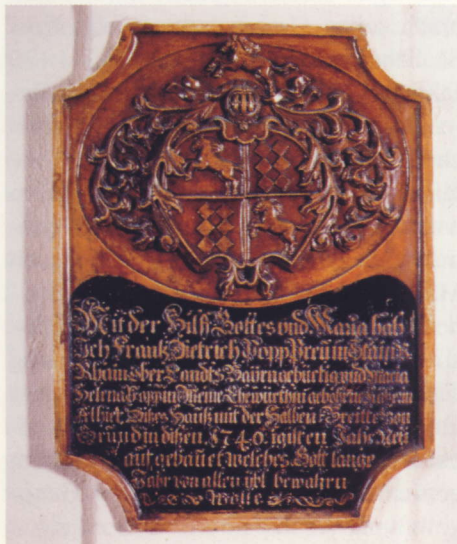 Mit der Hilff Gottes und Maria hab
Ich Frantz Dietrich Popp Preu in
Rhain ober Landts Bayen gebürtig und Maria
Helena Poppin Meine Ehewürthin gebohrne
Dißes Hauß mit der Halben Breitte von
Grund in dißen 1740 igisten Jahr Neü
auf gebauet welches Gott lange
Jahr von allen übl bewahrn
Wolle